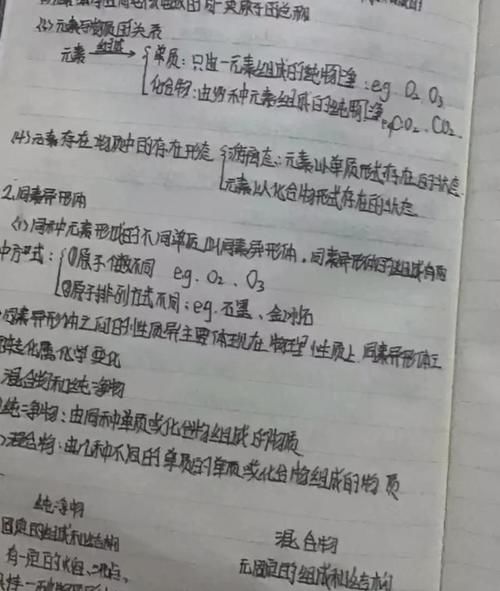 同一类原子的总称
元素与物质的关系
元素 组成 单质:只由一元素组成的纯物质:eg. O₂、O₃
化合物:由几种元素组成的纯净物 eg CO₂.
(4)元素存在物质中的存在形态 游离态:元素以单质形式存在的状态.
元素以化合物形式存在的状态.
2.同素异形体
(1)同种元素形成的不同单质叫同素异形体.同素异形体的组成有两
中方式: ①原子个数不同 eg. O₂、O₃
②原子排列方式不同:eg.石墨、金刚石
同素异形体之间的性质异主要体现在物理性质上.同素异形体之
转化属化学变化
混合物和纯净物
纯净物:由同种单质或化合物组成的物质
混合物:由几种不同的单质的单质或化合物组成的物质
纯净物 混合物
固定的组成和结构 无固定的组成和结构
有一定的熔、沸点、